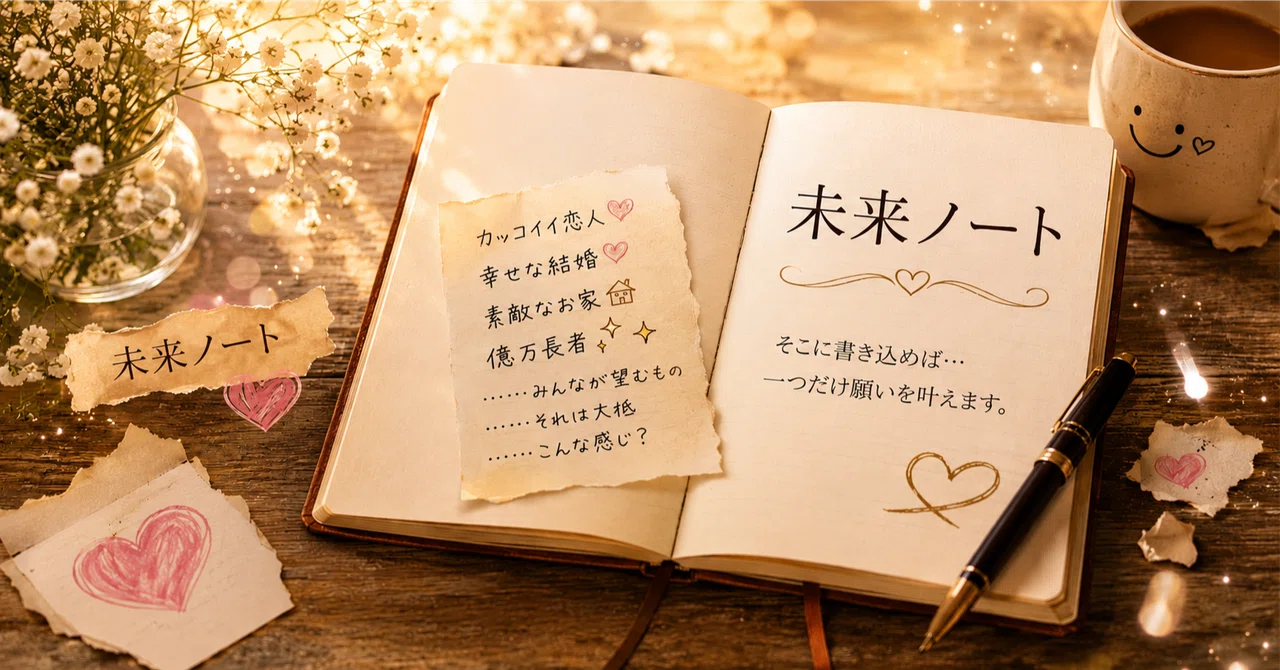 カッコイイ恋人
幸せな結婚
素敵なお家
億万長者
……みんなが望むもの
……それは大抵
……こんな感じ？
未来ノート
そこに書き込めば…
一つだけ願いを叶えます。
未来ノート